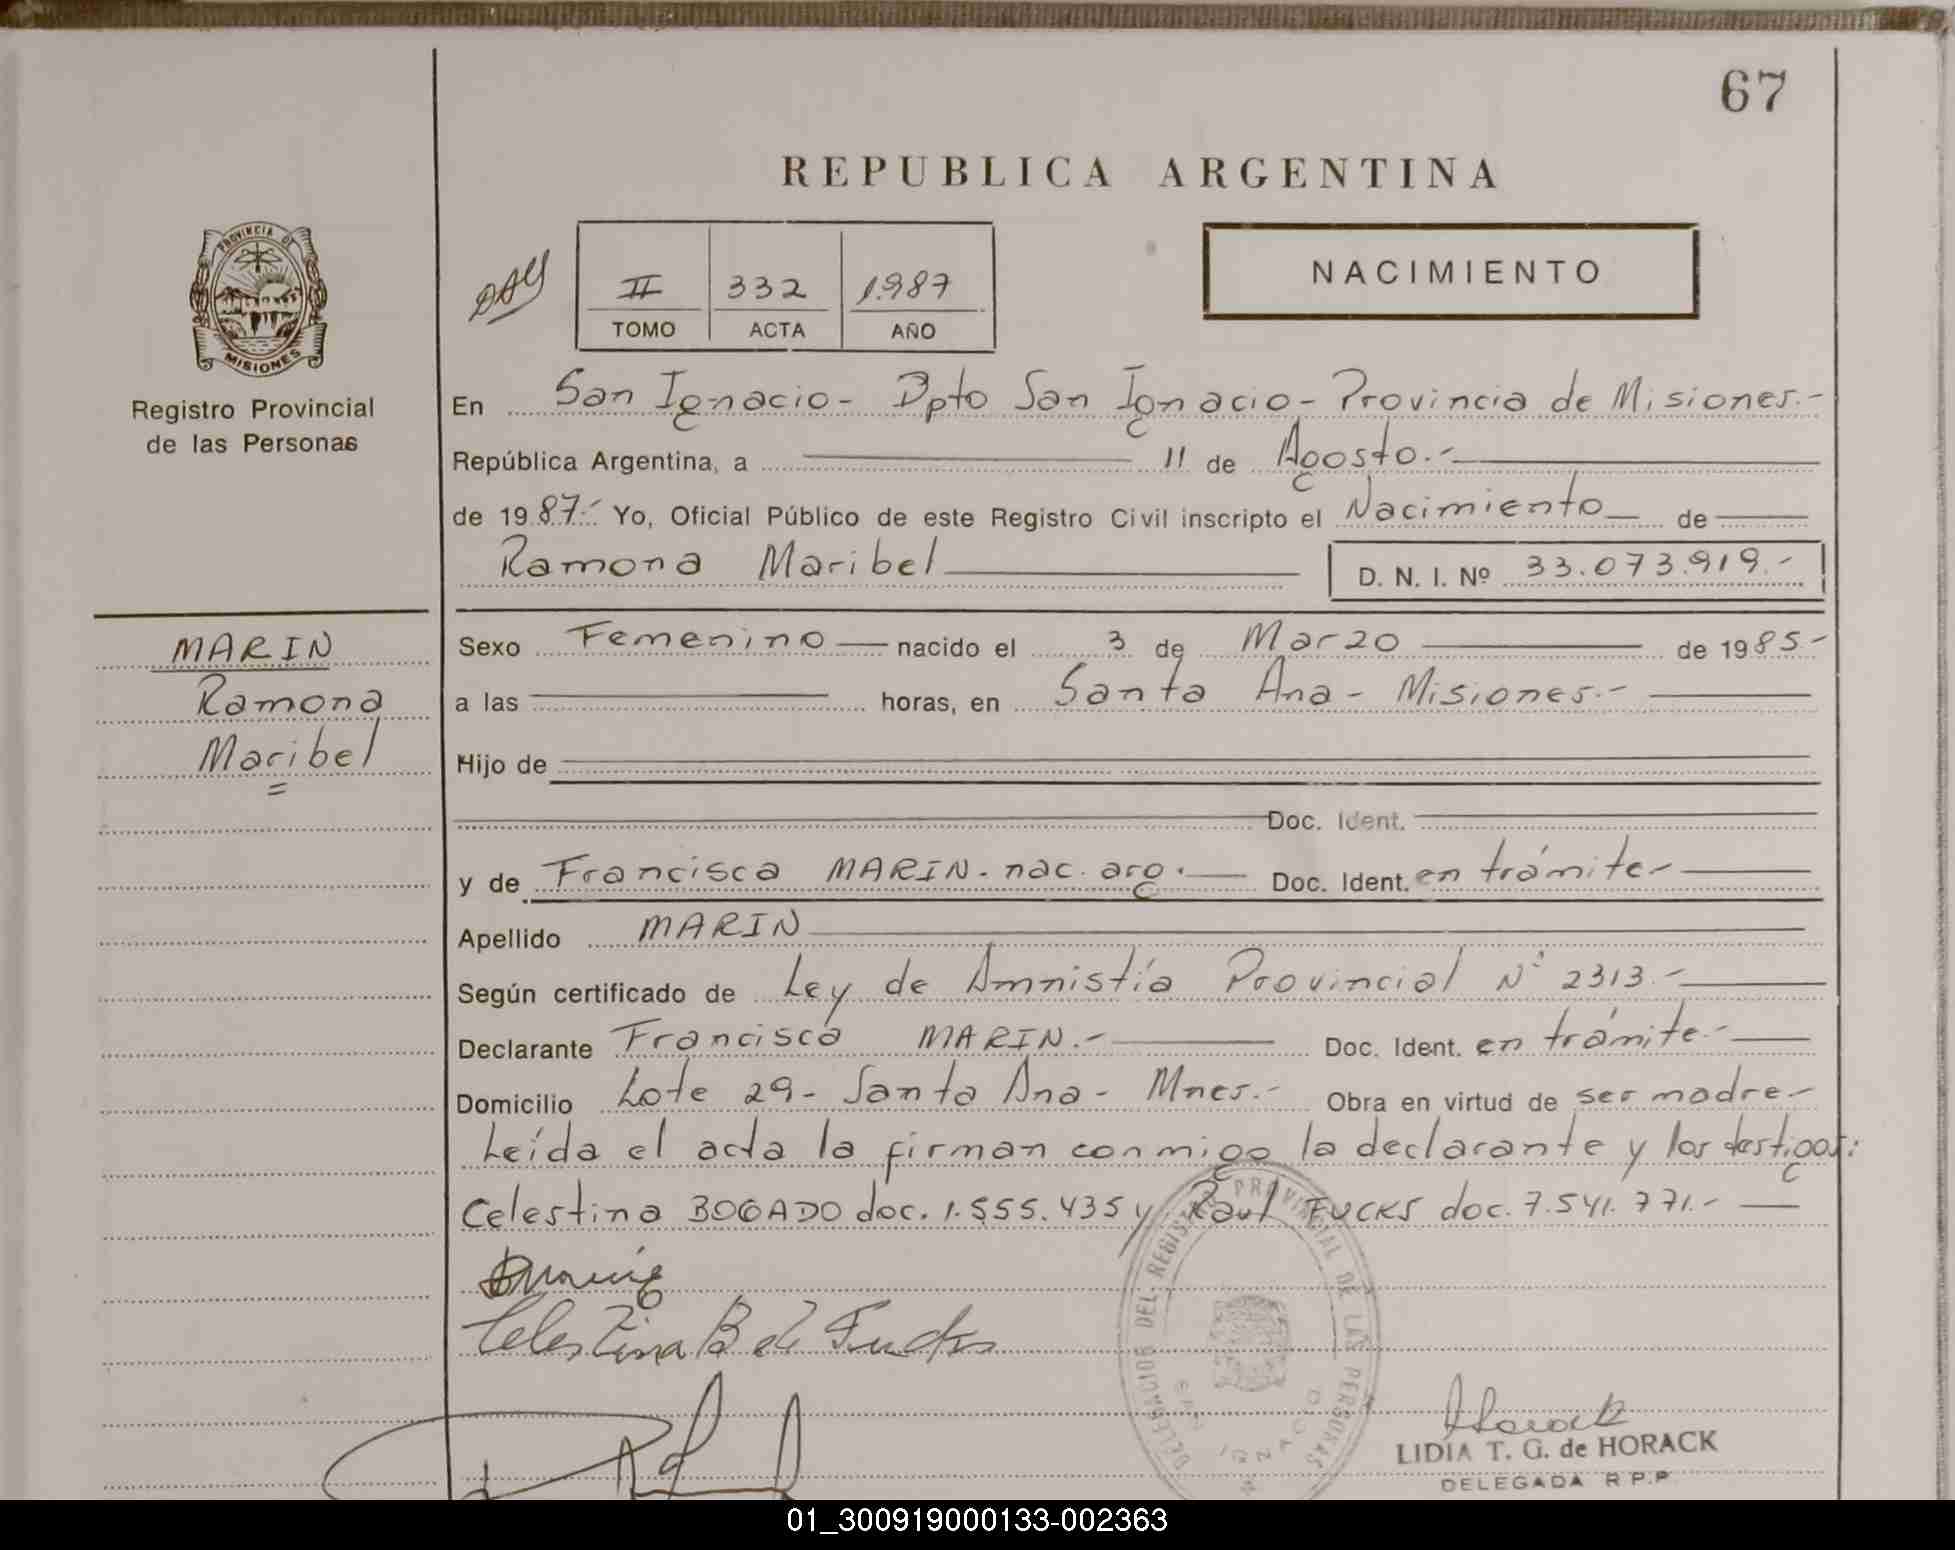 67
REPUBLICA ARGENTINA
PROVINCIA DE
MISIONES
Registro Provincial
de las Personas
II 332 1.987
TOMO ACTA AÑO
NACIMIENTO
En San Ignacio- Dpto San Ignacio- Provincia de Misiones.-
República Argentina, a 11 de Agosto.-
de 1987.- Yo, Oficial Público de este Registro Civil inscripto el Nacimiento de
Ramona Maribel D. N. I. Nº 33.073.919.-
MARIN
Ramona
Maribel
Sexo Femenino nacido el 3 de Marzo de 1985-
a las horas, en Santa Ana- Misiones.-
Hijo de
Doc. Ident.
y de Francisca MARIN. nac. arg. Doc. Ident. en trámite-
Apellido MARIN
Según certificado de Ley de Amnistía Provincial Nº 2313.-
Declarante Francisca MARIN.- Doc. Ident. en trámite.-
Domicilio Lote 29- Santa Ana- Mnes.- Obra en virtud de ser madre-
Leída el acta la firman conmigo la declarante y los testigos:
Celestina BOGADO doc. 1.555.435 y Raul FUCKS doc. 7.541.771.-
Celestina B de Fucks
DELEGACION DEL REGISTRO PROVINCIAL DE LAS PERSONAS
SAN IGNACIO
Horack
LIDIA T. G. de HORACK
DELEGADA R.P.P.
01_300919000133-002363